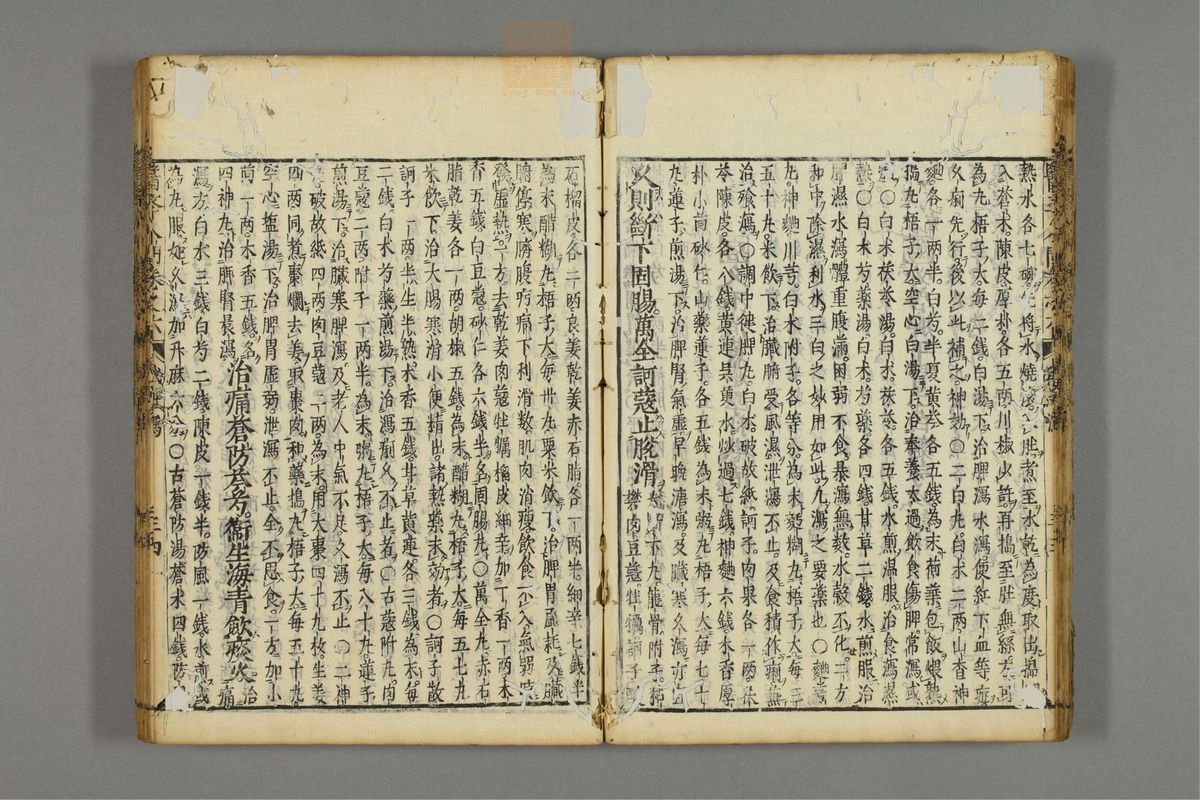 熱水各七碗將水燒滾入肚煮至水乾為度取出搗
入蒼朮陳皮厚朴各五兩川椒少許再搗至肚無絲方可
為丸梧子大每二錢白湯下治脾瀉水瀉便紅下血等症
久痢先行後以此補之神効〇二白丸白朮二兩山查神
麯各一兩半白芍半夏黃芩各五錢為末荷葉包飯煨熟
搗丸梧子大空心白湯下治奉養太過飲食傷脾常瀉或
〇白朮茯苓湯白朮茯苓各五錢水煎溫服治食瀉濕
熱〇白朮芍藥湯白朮芍藥各四錢甘草二錢水煎服治
脾濕水瀉體重腹滿困弱不食暴瀉無數水穀不化二方
和中除濕利水三白之妙用如此凡瀉之要藥也〇麯芎
丸神麯川芎白朮附子各等分為末麪糊丸梧子大每三
五十丸米飲下治臟腑受風濕泄瀉不止及食積作痢無
治飧瀉〇調中健脾丸白朮破故紙訶子肉果各一兩茯
苓陳皮各八錢黃連吳萸水炒過七錢神麯六錢木香厚
朴小茴砂仁山藥蓮子各五錢為末粥丸梧子大每七十
丸蓮子煎湯下治脾腎氣虛早晚溏瀉及臟寒久瀉亦宜
久則斷下固腸萬全訶蔻止脫滑
下丸龍骨附子枯
礬肉豆蔻牡蠣訶子
石榴皮各二兩良姜乾姜赤石脂各一兩半細辛七錢半
為末醋糊丸梧子大每卅丸粟米飲下治脾胃虛耗及臟
腑傷寒臍腹㽲痛下利滑數肌肉消瘦飲食不入氣弱時
發虛熱一方去乾姜肉蔻牡蠣榴皮細辛加丁香一兩木
香五錢白豆蔻砂仁各六錢半名固腸丸〇萬全丸赤石
脂乾姜各一兩胡椒五錢為末醋糊丸梧子大每五七丸
米飲下治大腸寒滑小便精出諸熱藥未効者〇訶子散
訶子一兩半生半熟木香五錢甘草黃連各三錢為末每
二錢白朮芍藥煎湯下治瀉痢久不止者〇古蔻附丸肉
豆蔻二兩附子一兩半為末糊丸梧子大每八十丸蓮子
煎湯下治臟寒脾瀉及老人中氣不足久瀉不止〇二神
破故紙四兩肉豆蔻二兩為末用大棗四十九枚生姜
四兩同煮棗爛去姜取棗肉和藥搗丸梧子大每五十丸
空心塩湯下治脾胃虛弱泄瀉不止全不思食一方加小
茴一兩木香五錢名
四神丸治脾腎晨瀉
治痛蒼防芸芍衞生海青飲
治痛
瀉方白朮三錢白芍二錢陳皮一錢半防風一錢水煎或
為丸服如久瀉加升麻六分〇古蒼防湯蒼朮四錢防